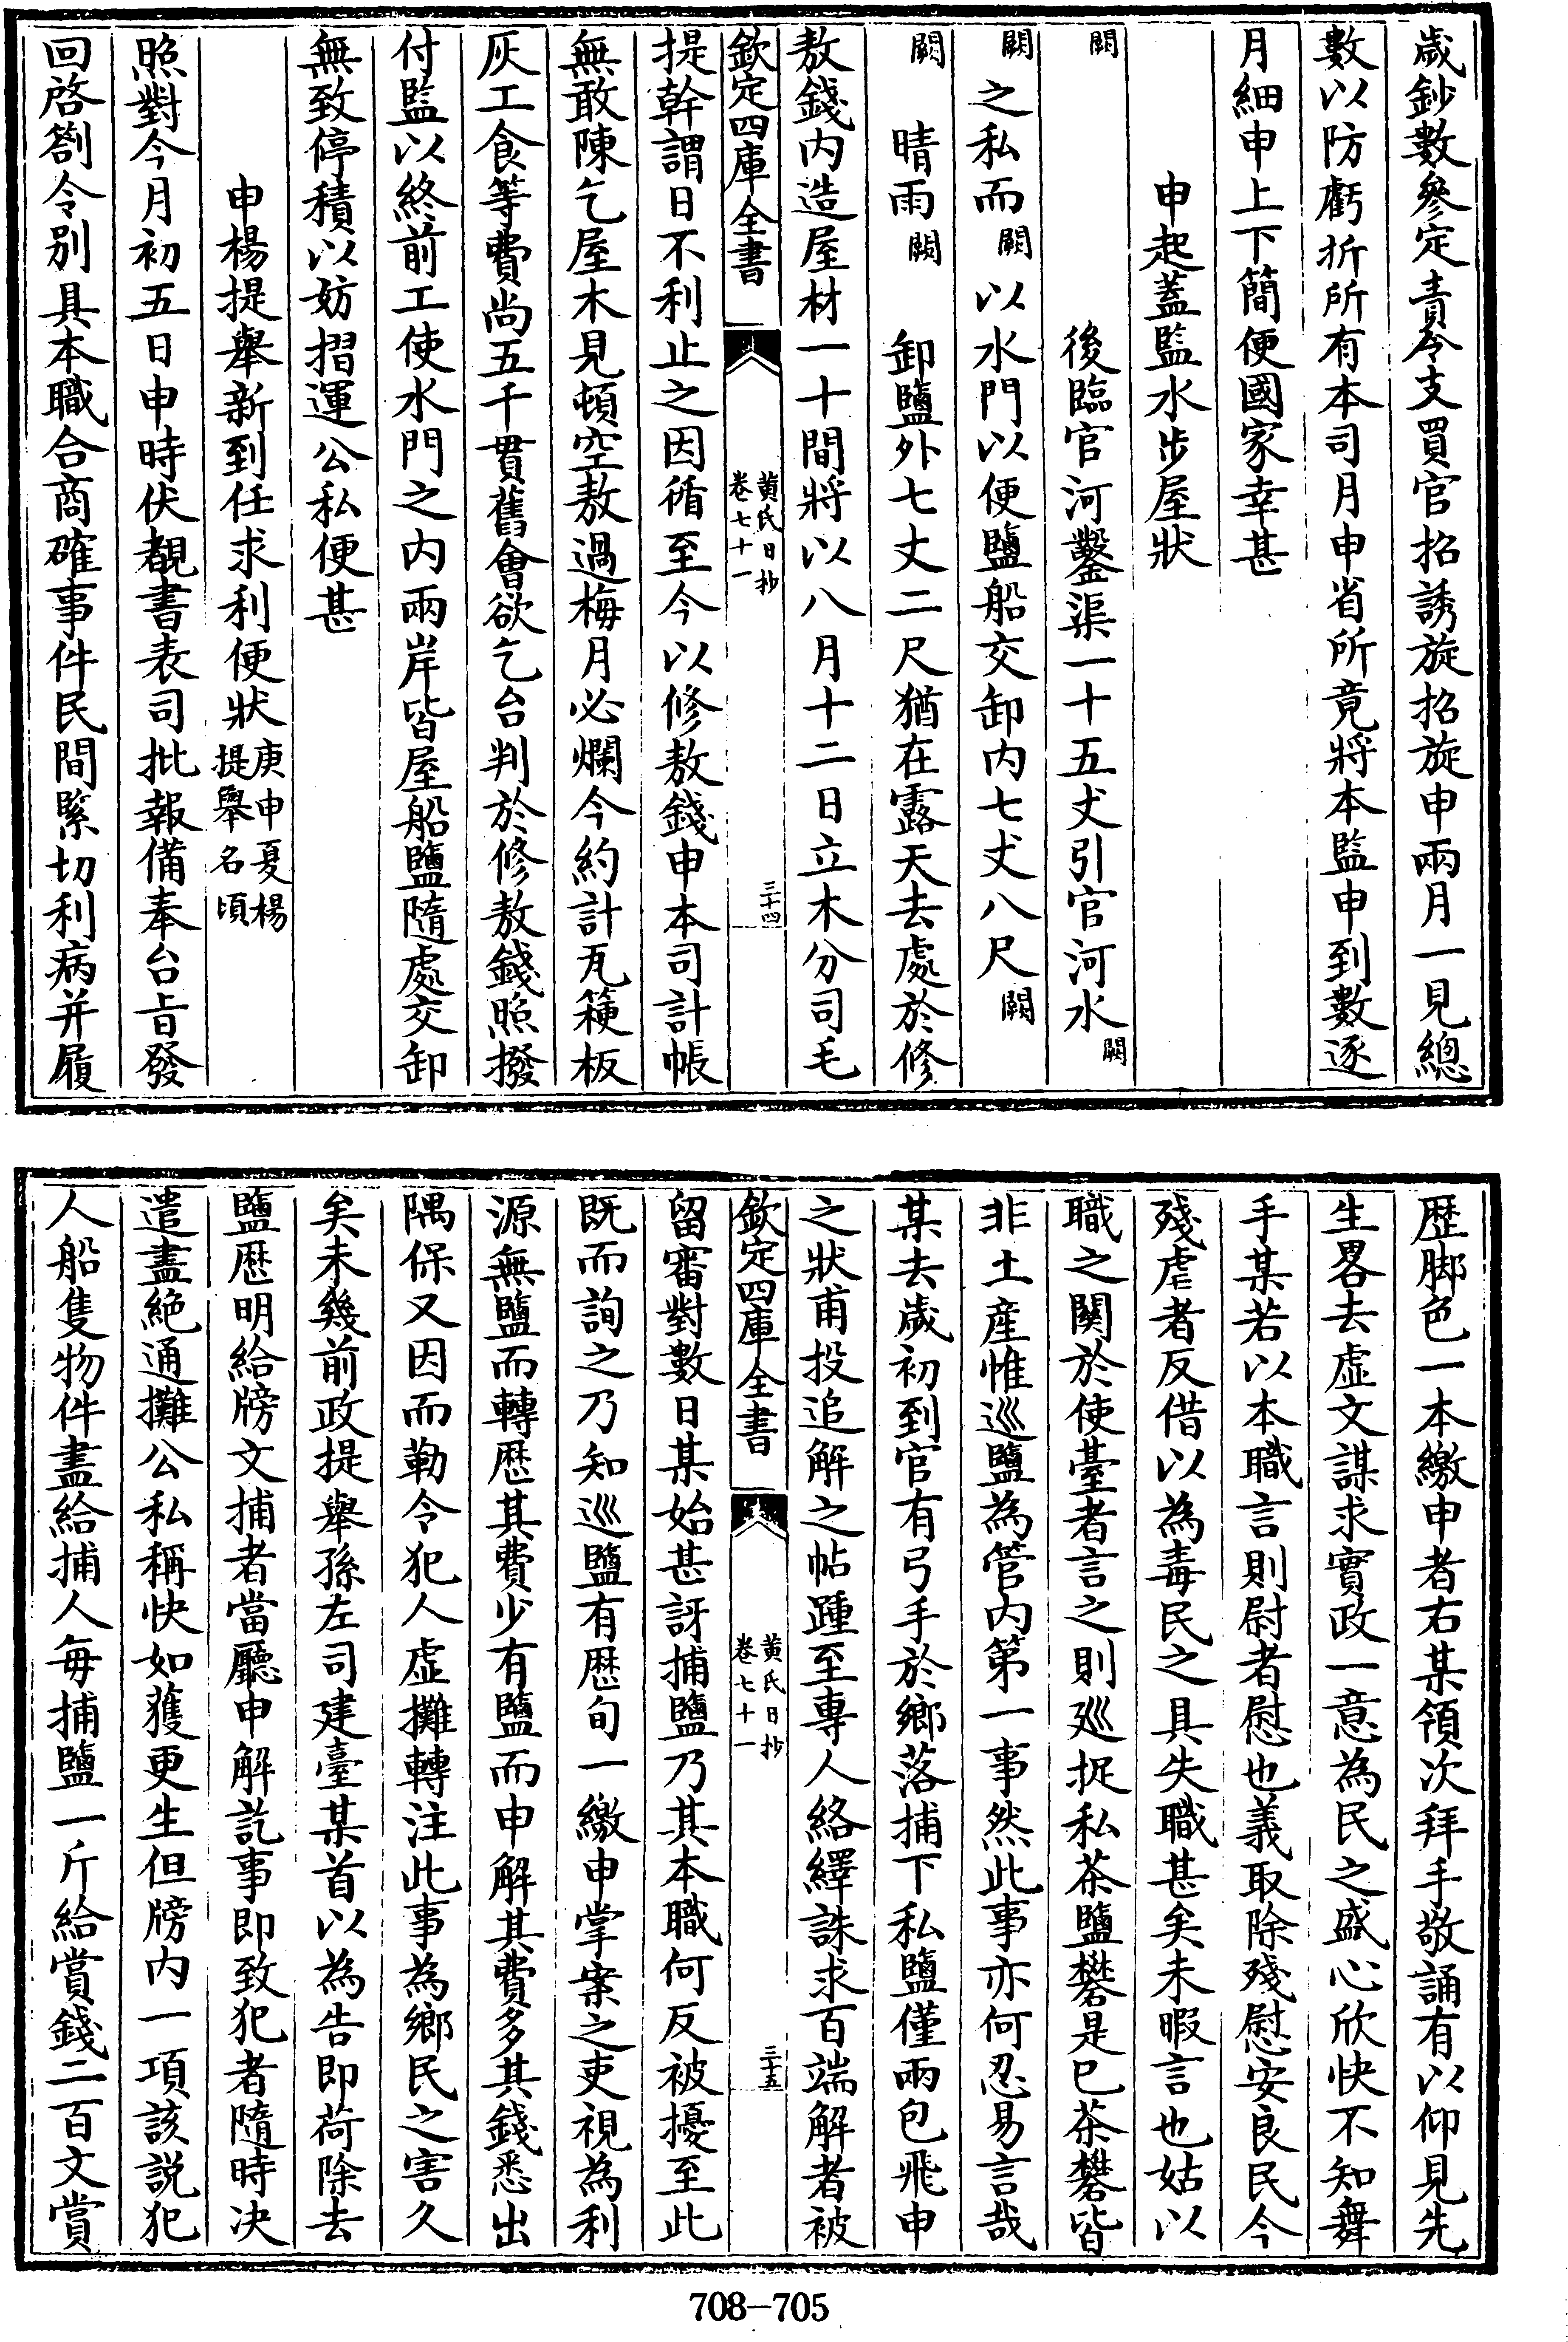 歲鈔數參定責令支買官招誘旋招旋申兩月一見總
數以防虧折所有本司月申省所竟將本監申到數逐
月細申上下簡便國家幸甚
申起蓋監水步屋狀
後臨官河鑿渠一十五丈引官河水闕
闕
闕之私而闕以水門以便鹽船交卸内七丈八尺闕
闕晴雨闕卸鹽外七丈二尺猶在露天去處於修
敖錢内造屋材一十間將以八月十二日立木分司毛
欽定四庫全書
黄氏日抄
卷七十一
三十四
提幹謂日不利止之因循至今以修敖錢申本司計帳
無敢陳乞屋木見頓空敖過梅月必爛今約計瓦䉋板
灰工食等費尚五千貫舊會欲乞台判於修敖錢照撥
付監以終前工使水門之内兩岸皆屋船鹽隨處交卸
無致停積以妨摺運公私便甚
申楊提舉新到任求利便狀庚申夏楊
提舉名頃
照對今月初五日申時伏覩書表司批報備奉台旨發
回啓劄令别具本職合商確事件民間緊切利病并履
歴脚色一本繳申者右某領次拜手敬誦有以仰見先
生畧去虚文謀求實政一意為民之盛心欣快不知舞
手某若以本職言則尉者慰也義取除殘慰安良民今
殘虐者反借以為毒民之具失職甚矣未暇言也姑以
職之關於使臺者言之則廵捉私茶鹽礬是已茶礬皆
非土産惟巡鹽為管内第一事然此事亦何忍易言哉
某去歲初到官有弓手於鄉落捕下私鹽僅兩包飛申
之狀甫投追解之帖踵至專人絡繹誅求百端解者被
欽定四庫全書
黄氏日抄
卷七十一
三十五
留審對數日某始甚訝捕鹽乃其本職何反被擾至此
既而詢之乃知巡鹽有歴旬一繳申掌案之吏視為利
源無鹽而轉歴其費少有鹽而申解其費多其錢悉出
隅保又因而勒令犯人虚攤轉注此事為鄉民之害久
矣未幾前政提舉孫左司建臺某首以為告即荷除去
鹽歴明給牓文捕者當廳申解訖事即致犯者隨時决
遣盡絶通攤公私稱快如獲更生但牓内一項該説犯
人船隻物件盡給捕人每捕鹽一斤給賞錢二百文賞
708—705